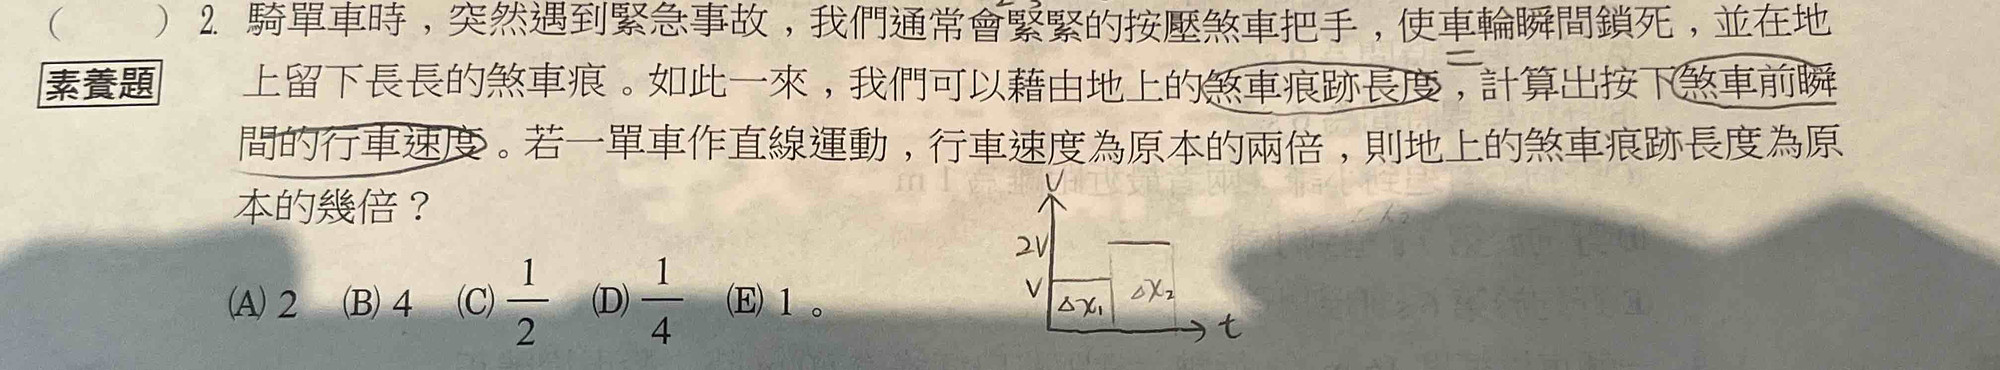 (　　) 2. 騎單車時，突然遇到緊急事故，我們通常會緊緊的按壓煞車把手，使車輪瞬間鎖死，並在地
素養題 上留下長長的煞車痕。如此一來，我們可以藉由地上的煞車痕跡長度，計算出按下煞車前瞬
間的行車速度。若一單車作直線運動，行車速度為原本的兩倍，則地上的煞車痕跡長度為原
本的幾倍？
(A) 2 (B) 4 (C) 1/2 (D) 1/4 (E) 1。
V
2V
V Δx₁ Δx₂
t